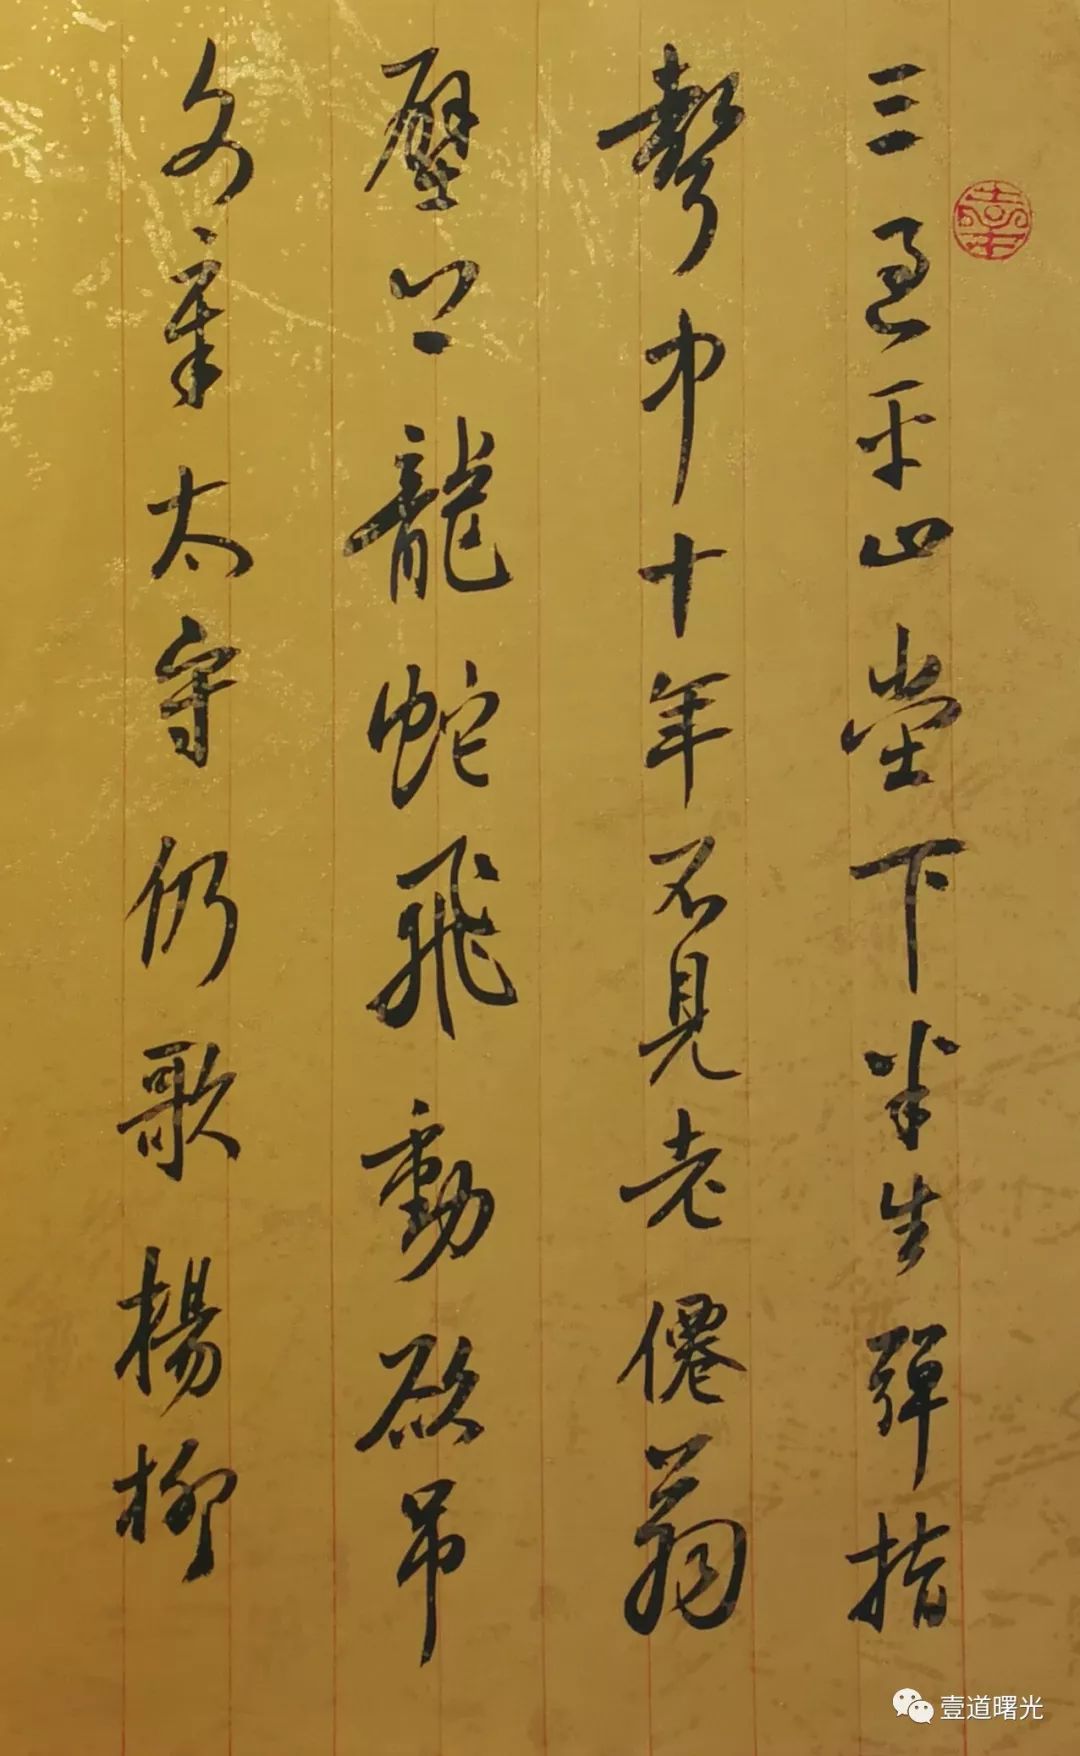 三過平山堂下半生彈指
聲中十年不見老僊翁
壁上龍蛇飛動欲吊
文章太守仍歌楊柳
壹道曙光